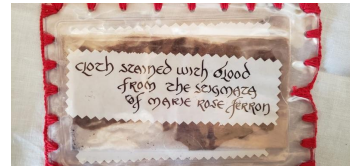 cloth stained with blood
from the stigmata
of marie rose ferron